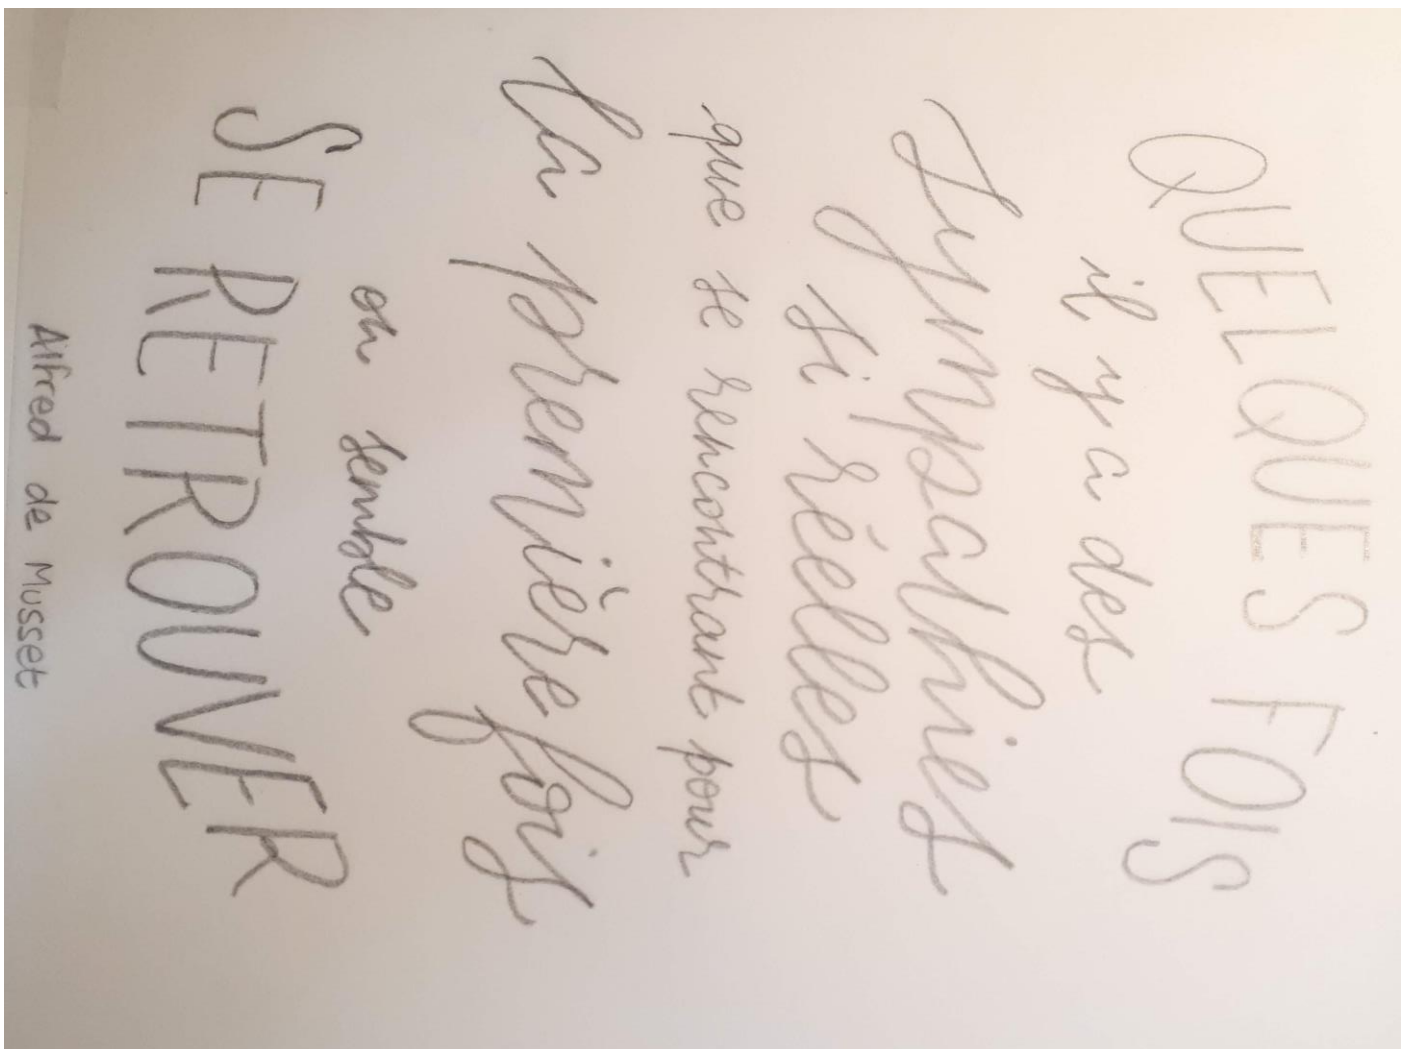 QUELQUES FOIS
il y a des
Sympathies
si réelles
que se rencontrant pour
la première fois
on semble
SE RETROUVER
Alfred de Musset